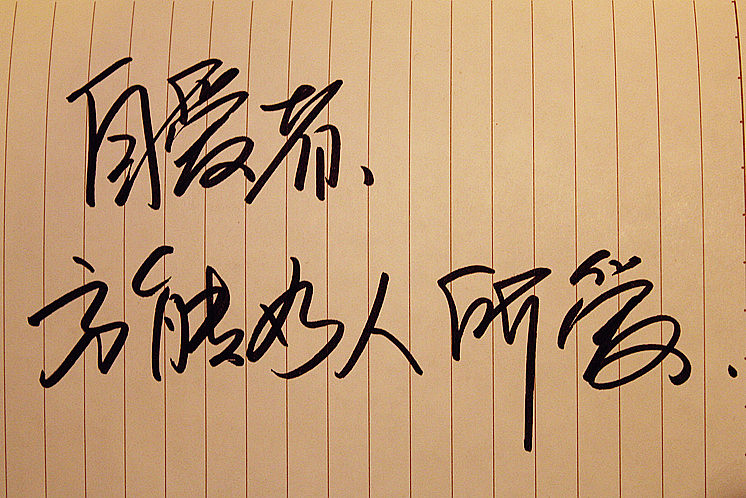 自爱者、
方能为人所爱.